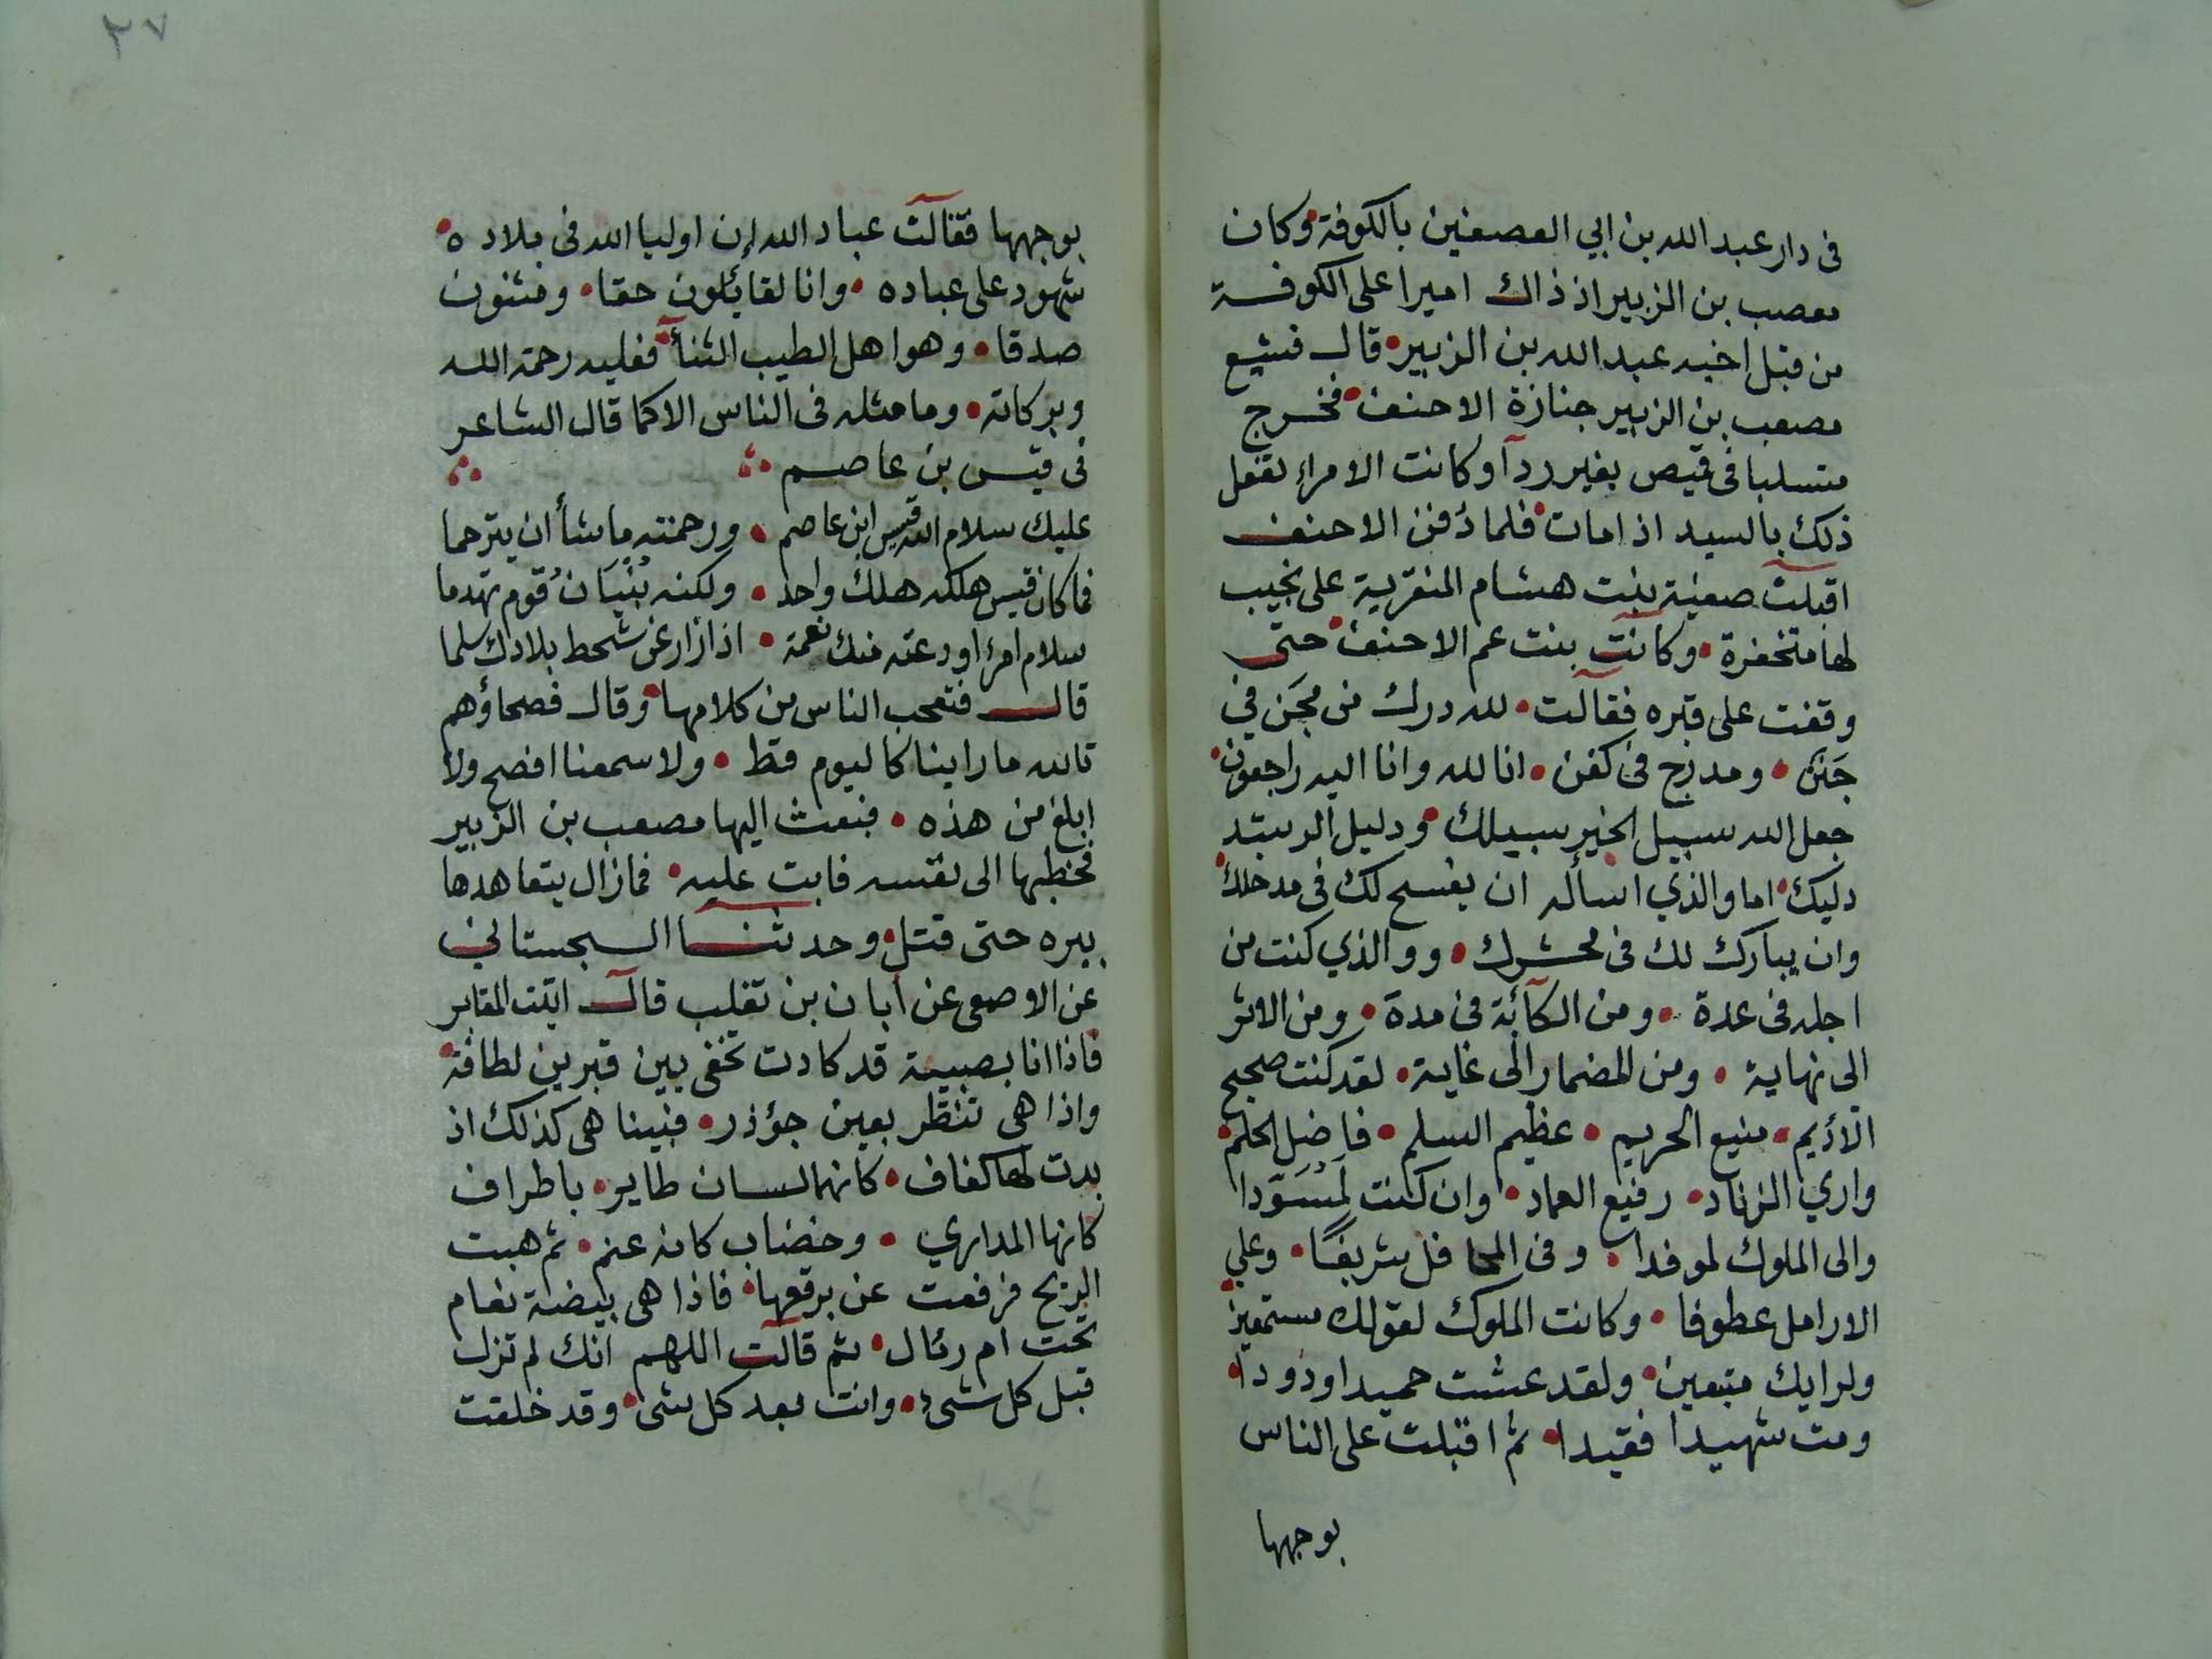 فى دار عبد الله بن ابي العصفين بالكوفة وكان
معصب بن الزبير اذ ذاك اميرا على الكوفة
من قبل اخيه عبد الله بن الزبير قال فشيع
مصعب بن الزبير جنازة الاحنف فخرج
متسلبا فى قميص بغير ردآ وكانت الامراء تفعل
ذلك بالسيد اذا مات فلما دُفن الاحنف
اقبلت صفية بنت هشام المنقرية على نجيب
لها متخفرة وكانت بنت عم الاحنف حتى
وقفت على قبره فقالت لله درك من مجَن في
جَنَن ومدرج فى كفن انا لله وانا اليه راجعون
جعل الله سبيل الخير سبيلك ودليل الرشد
دليك اما والذي اسأله ان يفسح لك فى مدخلك
وان يبارك لك فى محشرك ووالذي كنت من
اجله فى عدة ومن الكآئبة فى مدة ومن الاثر
الى نهاية ومن المضمار الى غاية لقد كنت صحيح
الاديم منيع الحريم عظيم السلم فاضل الحلم
واري الزناد رفيع العماد وان كنت لَمُسَوّدا
والى الملوك لموفدا وفى المحافل شريفًا وعلي
الارامل عطوفا وكانت الملوك لقولك مستمعين
ولرايك متبعين ولقد عشت حميدا ودودا
ومت شهيدا فقيدا ثم اقبلت على الناس
بوجهها
٣٧
بوجهها فقالت عباد الله إن اوليا الله فى بلاده
شهود على عباده وانا لقائلون حقا ومثنون
صدقا وهو اهل لطيب الثنأ فعليه رحمة الله
وبركاته وما مثله فى الناس الا كما قال الشاعر
فى قيس بن عاصم
عليك سلام الله قيس ابن عاصم ورحمته ما شأ ان يترحما
فما كان قيس هلكه هلك واحد ولكنه بُنْيَانُ قوم تهدما
سلام امرء اودعته منك نعمة اذا زار عن شحط بلادك سلما
قال فتعجب الناس من كلامها وقال فصحاؤهم
تالله ما راينا كاليوم قط ولا سمعنا افصح ولا
ابلغ من هذه فبعث اليها مصعب بن الزبير
فخطبها الى نفسه فابت عليه فما زال يتعاهدها
ببره حتى قتل وحدثنا السجستاني
عن الاصمعى عن أبان بن تغلب قال اتيت المقابر
فاذا انا بصبية قد كادت تخفى بين قبرين لطافة
واذا هى تنظر بعين جؤذر فبينا هى كذلك اذ
بدت لها كفاف كانها لسان طاير باطراف
كانها المداري وخضاب كانه عنم ثم هبت
الريح فرفعت عن برقعها فاذا هى بيضة نعام
تحت ام رئال ثم قالت اللهم انك لم تزل
قبل كل شىء وانت بعد كل شىء وقد خلقت